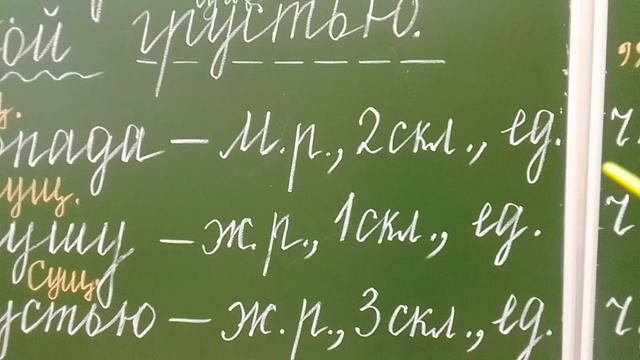 ой грустью.
опада – м.р., 2 скл., ед. ч.
сущ.
ушу – ж.р., 1 скл., ед. ч.
Сущ.
устью – ж.р., 3 скл., ед. ч.